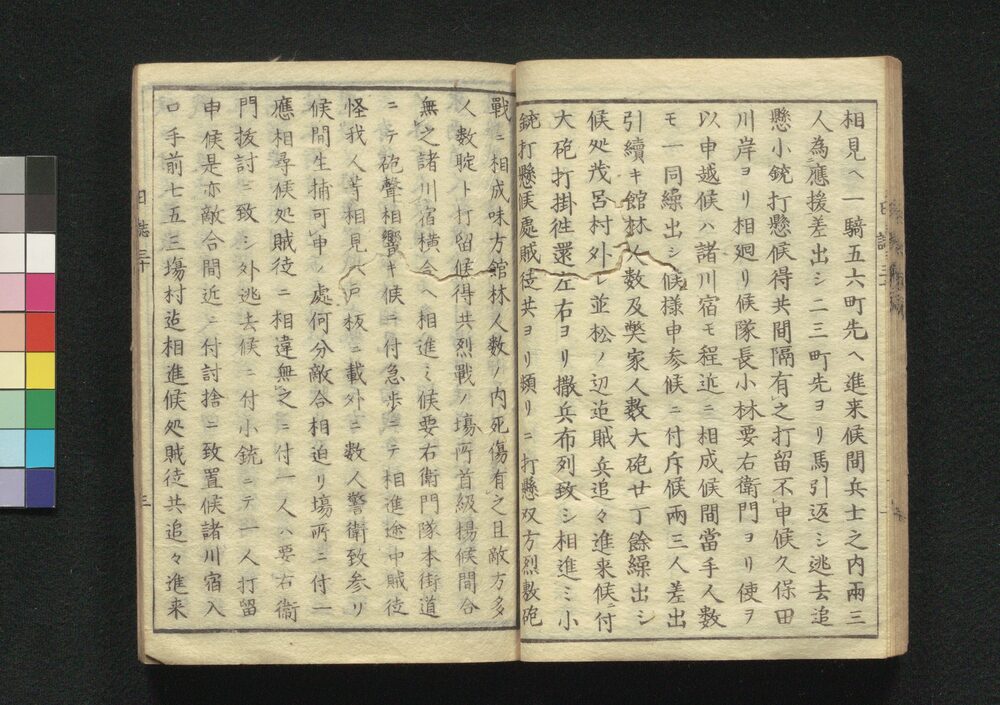 相見ヘ一騎五六町先ヘ進来候間兵士之内兩三
人為應援差出シ二三町先ヨリ馬引返シ逃去追
懸小銃打懸候得共間隔有之打留不申候久保田
川岸ヨリ相廻リ候隊長小林要右衛門ヨリ使ヲ
以申越候ハ諸川宿モ程近ニ相成候間當手人数
モ一同繰出シ候様申参候ニ付斥候兩三人差出
引續キ館林人数及奬家人数大砲廿丁餘繰出シ
候処茂呂村外レ並松ノ辺迠賊兵追々進来候ニ付
大砲打掛往還左右ヨリ撒兵布列致シ相進ミ小
銃打懸候處賊徒共ヨリ頻リニ打懸双方烈敷砲
戰ニ相成味方館林人数ノ内死傷有之且敵方多
人数聢ト打留候得共烈戰ノ塲所首級揚候間合
無之諸川宿横合ヘ相進ミ候要右衛門隊本街道
ニテ砲聲相響キ候ニ付急歩ニテ相進途中賊徒
怪我人等相見ヘ戸板ニ載外ニ数人警衛致参リ
候間生捕可申ノ處何分敵合相迫リ塲所ニ付一
應相尋候処賊徒ニ相違無之ニ付一人ハ要右衛
門抜討ニ致シ外逃去候ニ付小銃ニテ一人打留
申候是亦敵合間近ニ付討捨ニ致置候諸川宿入
口手前七五三塲村迠相進候処賊徒共追々進来
日誌三十
三